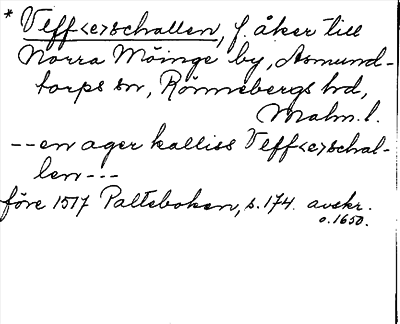 * Veff<e>schallen, f. åker till
Norra Möinge by, Asmund-
torps sn, Rönnebergs hd,
Malm. l.
-- en ager kalliss Veff<e>schal-
len ---
före 1517 Palteboken, s. 174. avskr.
o. 1650.